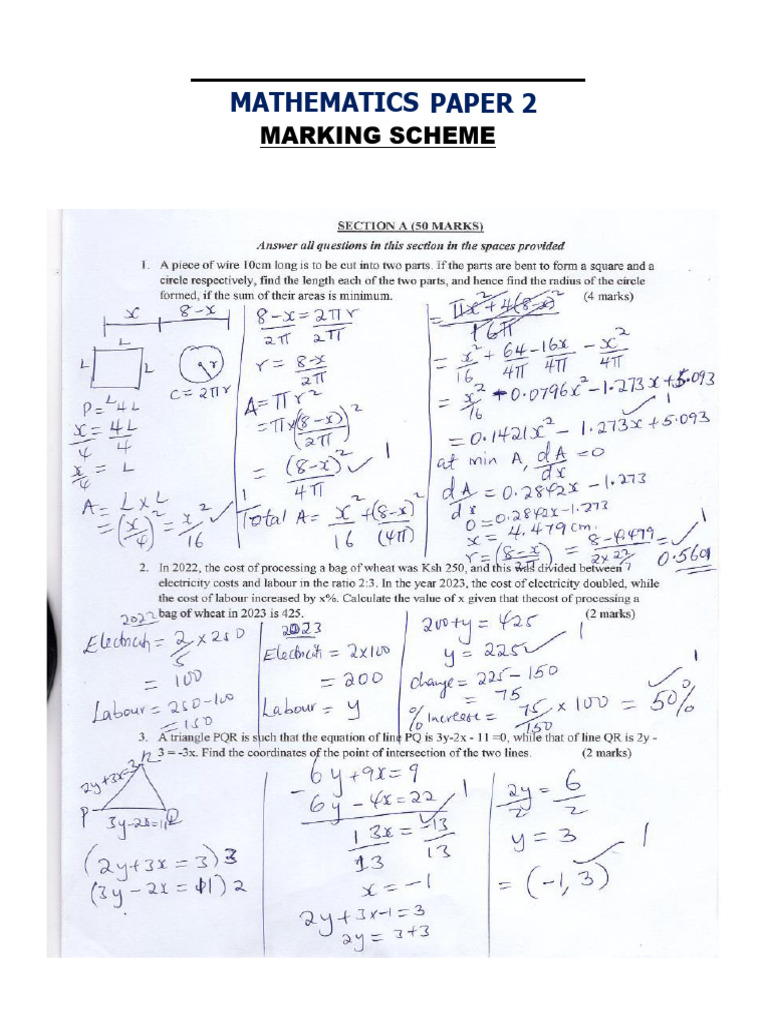 MATHEMATICS PAPER 2
MARKING SCHEME
SECTION A (50 MARKS)
Answer all questions in this section in the spaces provided
1. A piece of wire 10cm long is to be cut into two parts. If the parts are bent to form a square and a
circle respectively, find the length each of the two parts, and hence find the radius of the circle
formed, if the sum of their areas is minimum. (4 marks)
x 8-x
L
L L
r
C = 2πr
P = 4L
x/4 = 4L/4
x/4 = L
A = L x L
= (x/4)² = x²/16 ✓ 1
8-x/2π = 2πr/2π
r = 8-x/2π
A = πr²
= π x (8-x/2π)²
= (8-x)²/4π ✓ 1
Total A = x²/16 + (8-x)²/(4π)
= πx² + 4(8-x)²/16π
= x²/16 + 64/4π - 16x/4π - x²/4π
= x²/16 + 0.0796x² - 1.273x + 5.093
= 0.1421x² - 1.273x + 5.093 ✓ 1
at min A, dA/dx = 0
dA/dx = 0.2842x - 1.273
0 = 0.2842x - 1.273
x = 4.479 cm.
r = (8-x/2π) = 8-4.479/2x22/7 = 0.5601 ✓ 1
2. In 2022, the cost of processing a bag of wheat was Ksh 250, and this was divided between
electricity costs and labour in the ratio 2:3. In the year 2023, the cost of electricity doubled, while
the cost of labour increased by x%. Calculate the value of x given that thecost of processing a
bag of wheat in 2023 is 425. (2 marks)
2022
Electricity = 2/5 x 250
= 100
Labour = 250-100
= 150
2023
Electricity = 2x100
= 200
Labour = y
200+y = 425
y = 225 ✓ 1
change = 225 - 150
= 75
% Increase = 75/150 x 100 = 50% ✓ 1
3. A triangle PQR is such that the equation of line PQ is 3y-2x - 11 =0, while that of line QR is 2y -
3 = -3x. Find the coordinates of the point of intersection of the two lines. (2 marks)
R
2y+3x=3
P Q
3y-2x=11
(2y+3x = 3)3
(3y-2x = 11)2
6y+9x = 9
- 6y-4x = 22 ✓ 1
13x/13 = -13/13
x = -1
2y+3x-1 = 3
2y = 3+3
2y/2 = 6/2
y = 3
= (-1, 3) ✓ 1